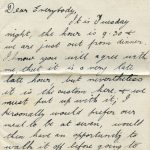 Dear Everybody,
It is Tuesday
night, the hour is 9.30 &
we are just out from dinner.
I know you will agree with
me that it is a very late
late hour, but nevertheless
it is the custom here & we
must put up with it; I
personally would prefer our
meal at six or seven, would
then have an opportunity to
walk it off before going to